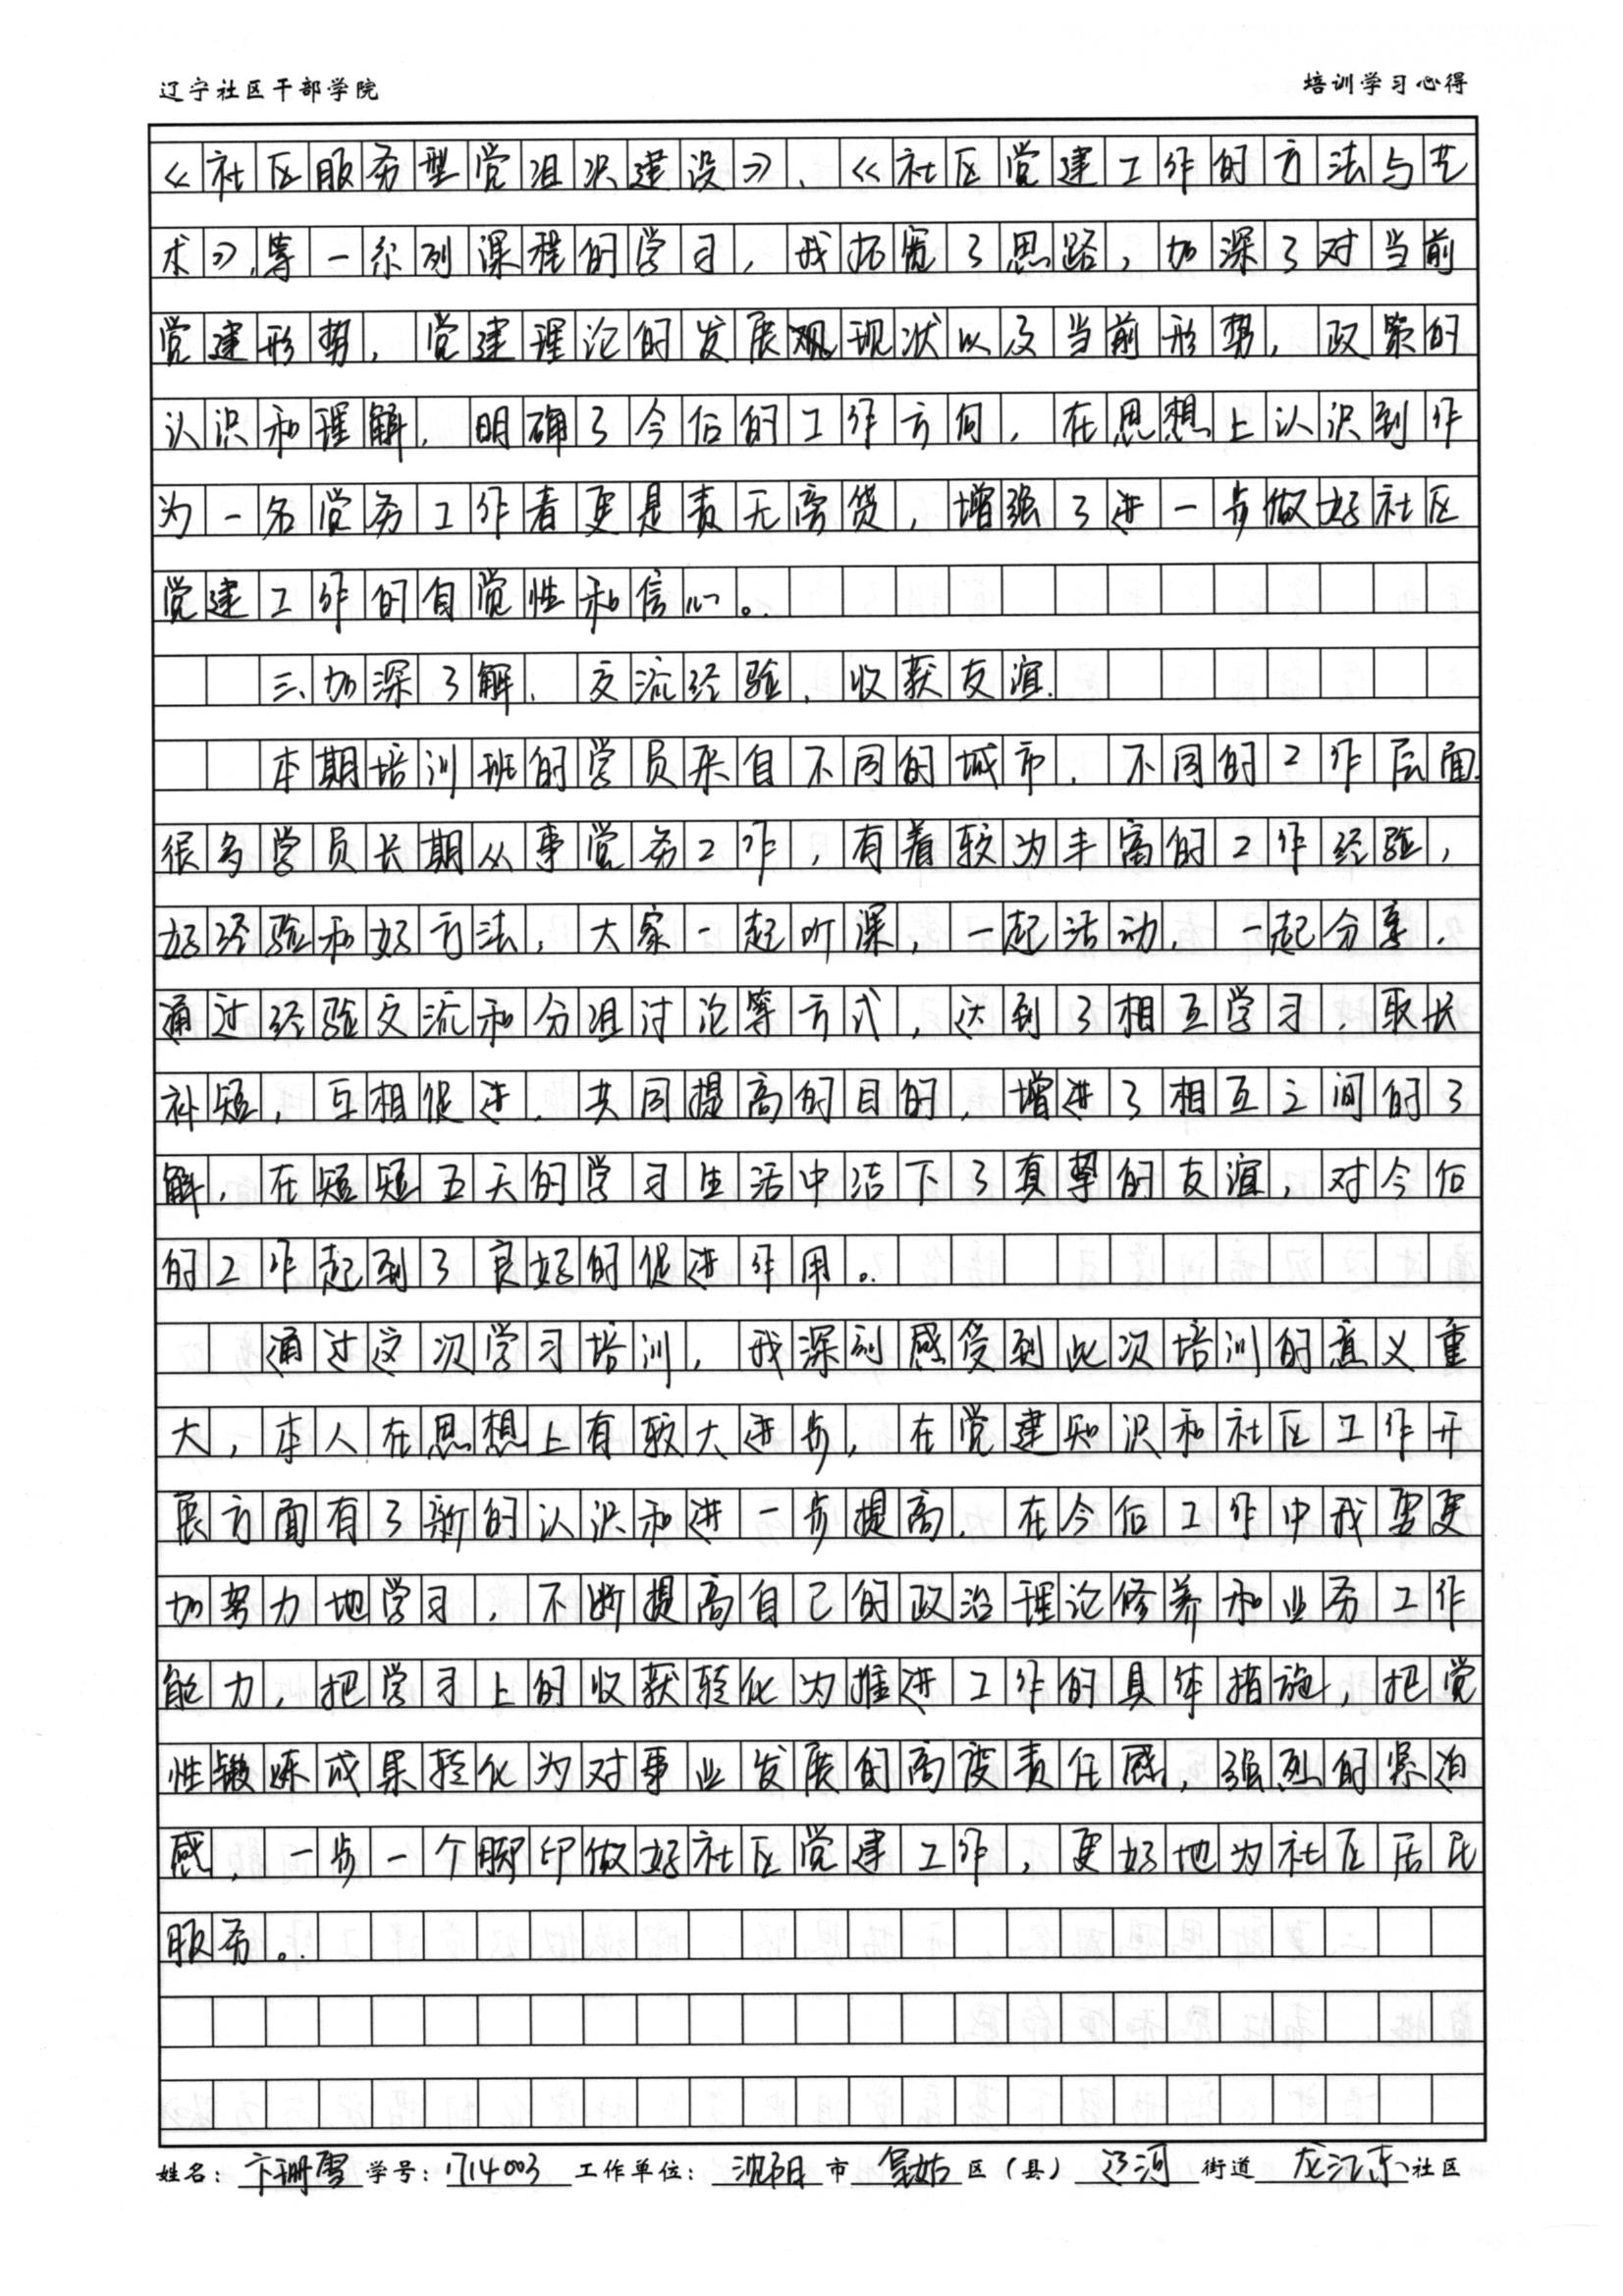 辽宁社区干部学院 培训学习心得
《社区服务型党组织建设》、《社区党建工作的方法与艺
术》,等一系列课程的学习，我拓宽了思路，加深了对当前
党建形势，党建理论的发展观现状以及当前形势，政策的
认识和理解，明确了今后的工作方向，在思想上认识到作
为一名党务工作者更是责无旁贷，增强了进一步做好社区
党建工作的自觉性和信心。
三、加深了解、交流经验、收获友谊.
本期培训班的学员来自不同的城市、不同的工作层面.
很多学员长期从事党务工作，有着较为丰富的工作经验，
好经验和好方法，大家一起听课，一起活动，一起分享，
通过经验交流和分组讨论等方式，达到了相互学习，取长
补短，互相促进，共同提高的目的，增进了相互之间的了
解，在短短五天的学习生活中结下了真挚的友谊，对今后
的工作起到了良好的促进作用。
通过这次学习培训，我深刻感受到此次培训的意义重
大，本人在思想上有较大进步，在党建知识和社区工作开
展方面有了新的认识和进一步提高，在今后工作中我要更
加努力地学习，不断提高自己的政治理论修养和业务工作
能力，把学习上的收获转化为推进工作的具体措施，把党
性锻炼成果转化为对事业发展的高度责任感，强烈的紧迫
感，一步一个脚印做好社区党建工作，更好地为社区居民
服务。
姓名：卞珊雪 学号：1714003 工作单位：沈阳市皇姑区（县）辽河街道龙江东社区